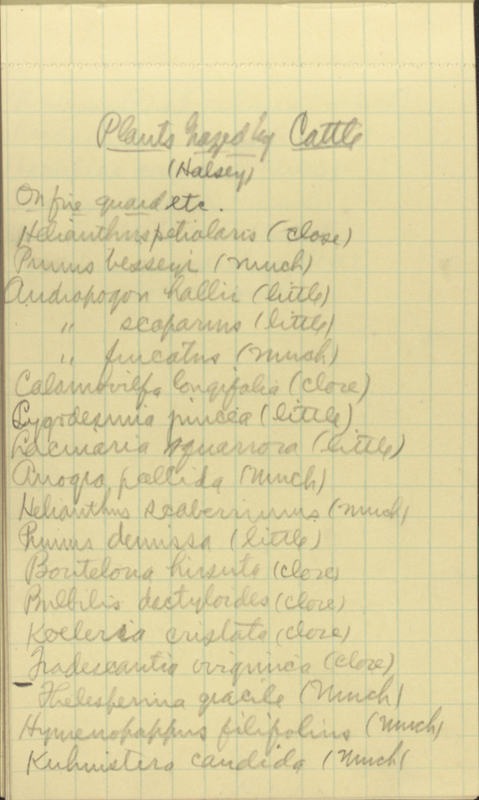 Plants Grazed by Cattle
(Halsey)
On fire guard etc.
Helianthus petiolaris (close)
Prunus besseyi (much)
Andropogon hallii (little)
" scoparius (little)
" furcatus (much)
Calamovilfa longifolia (close)
Lygodesmia juncea (little)
Lacinaria squarrosa (little)
Anogra pallida (much)
Helianthus scaberrimus (much)
Prunus demissa (little)
Boutelona hirsuta (close)
Bulbilis dactyloides (close)
Koeleria cristata (close)
Tradescantia virginica (close)
Thelesperma gracile (Much)
Hymenopappus filifolius (much)
Kuhnistera candida (Much)